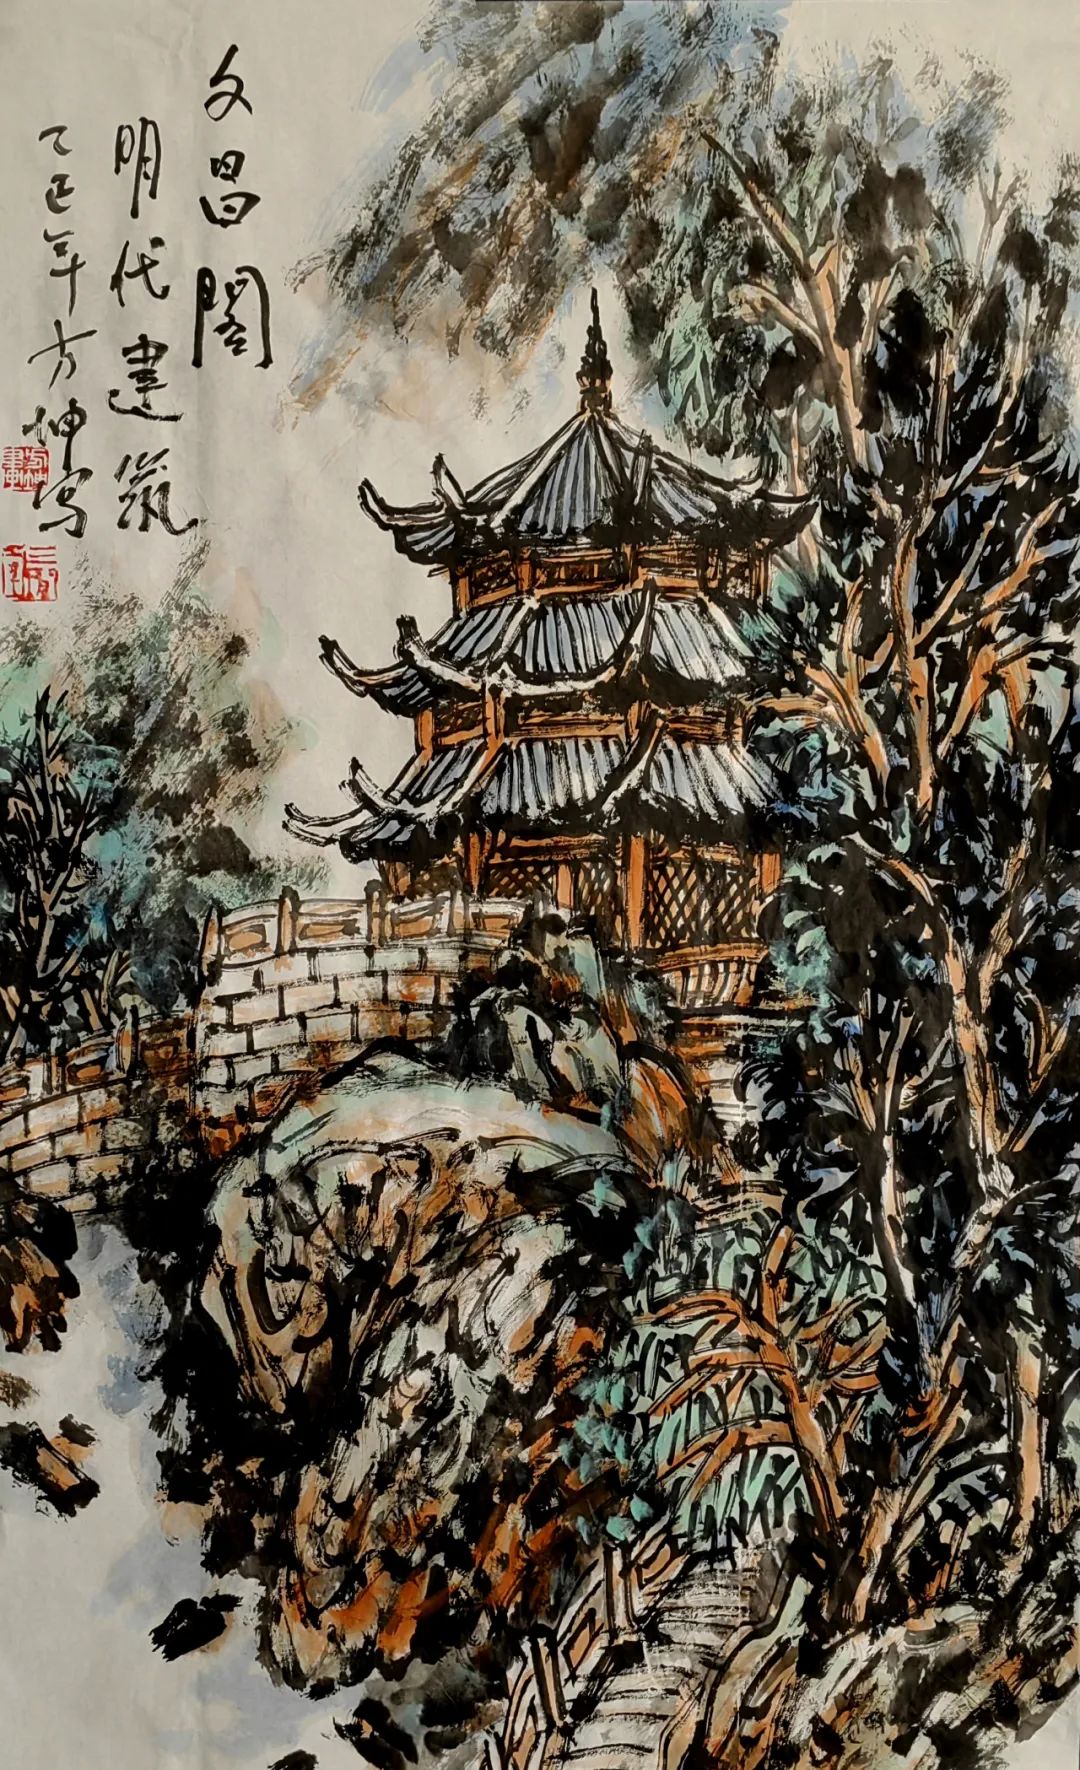 文昌阁
明代建筑
乙巳年方坤写